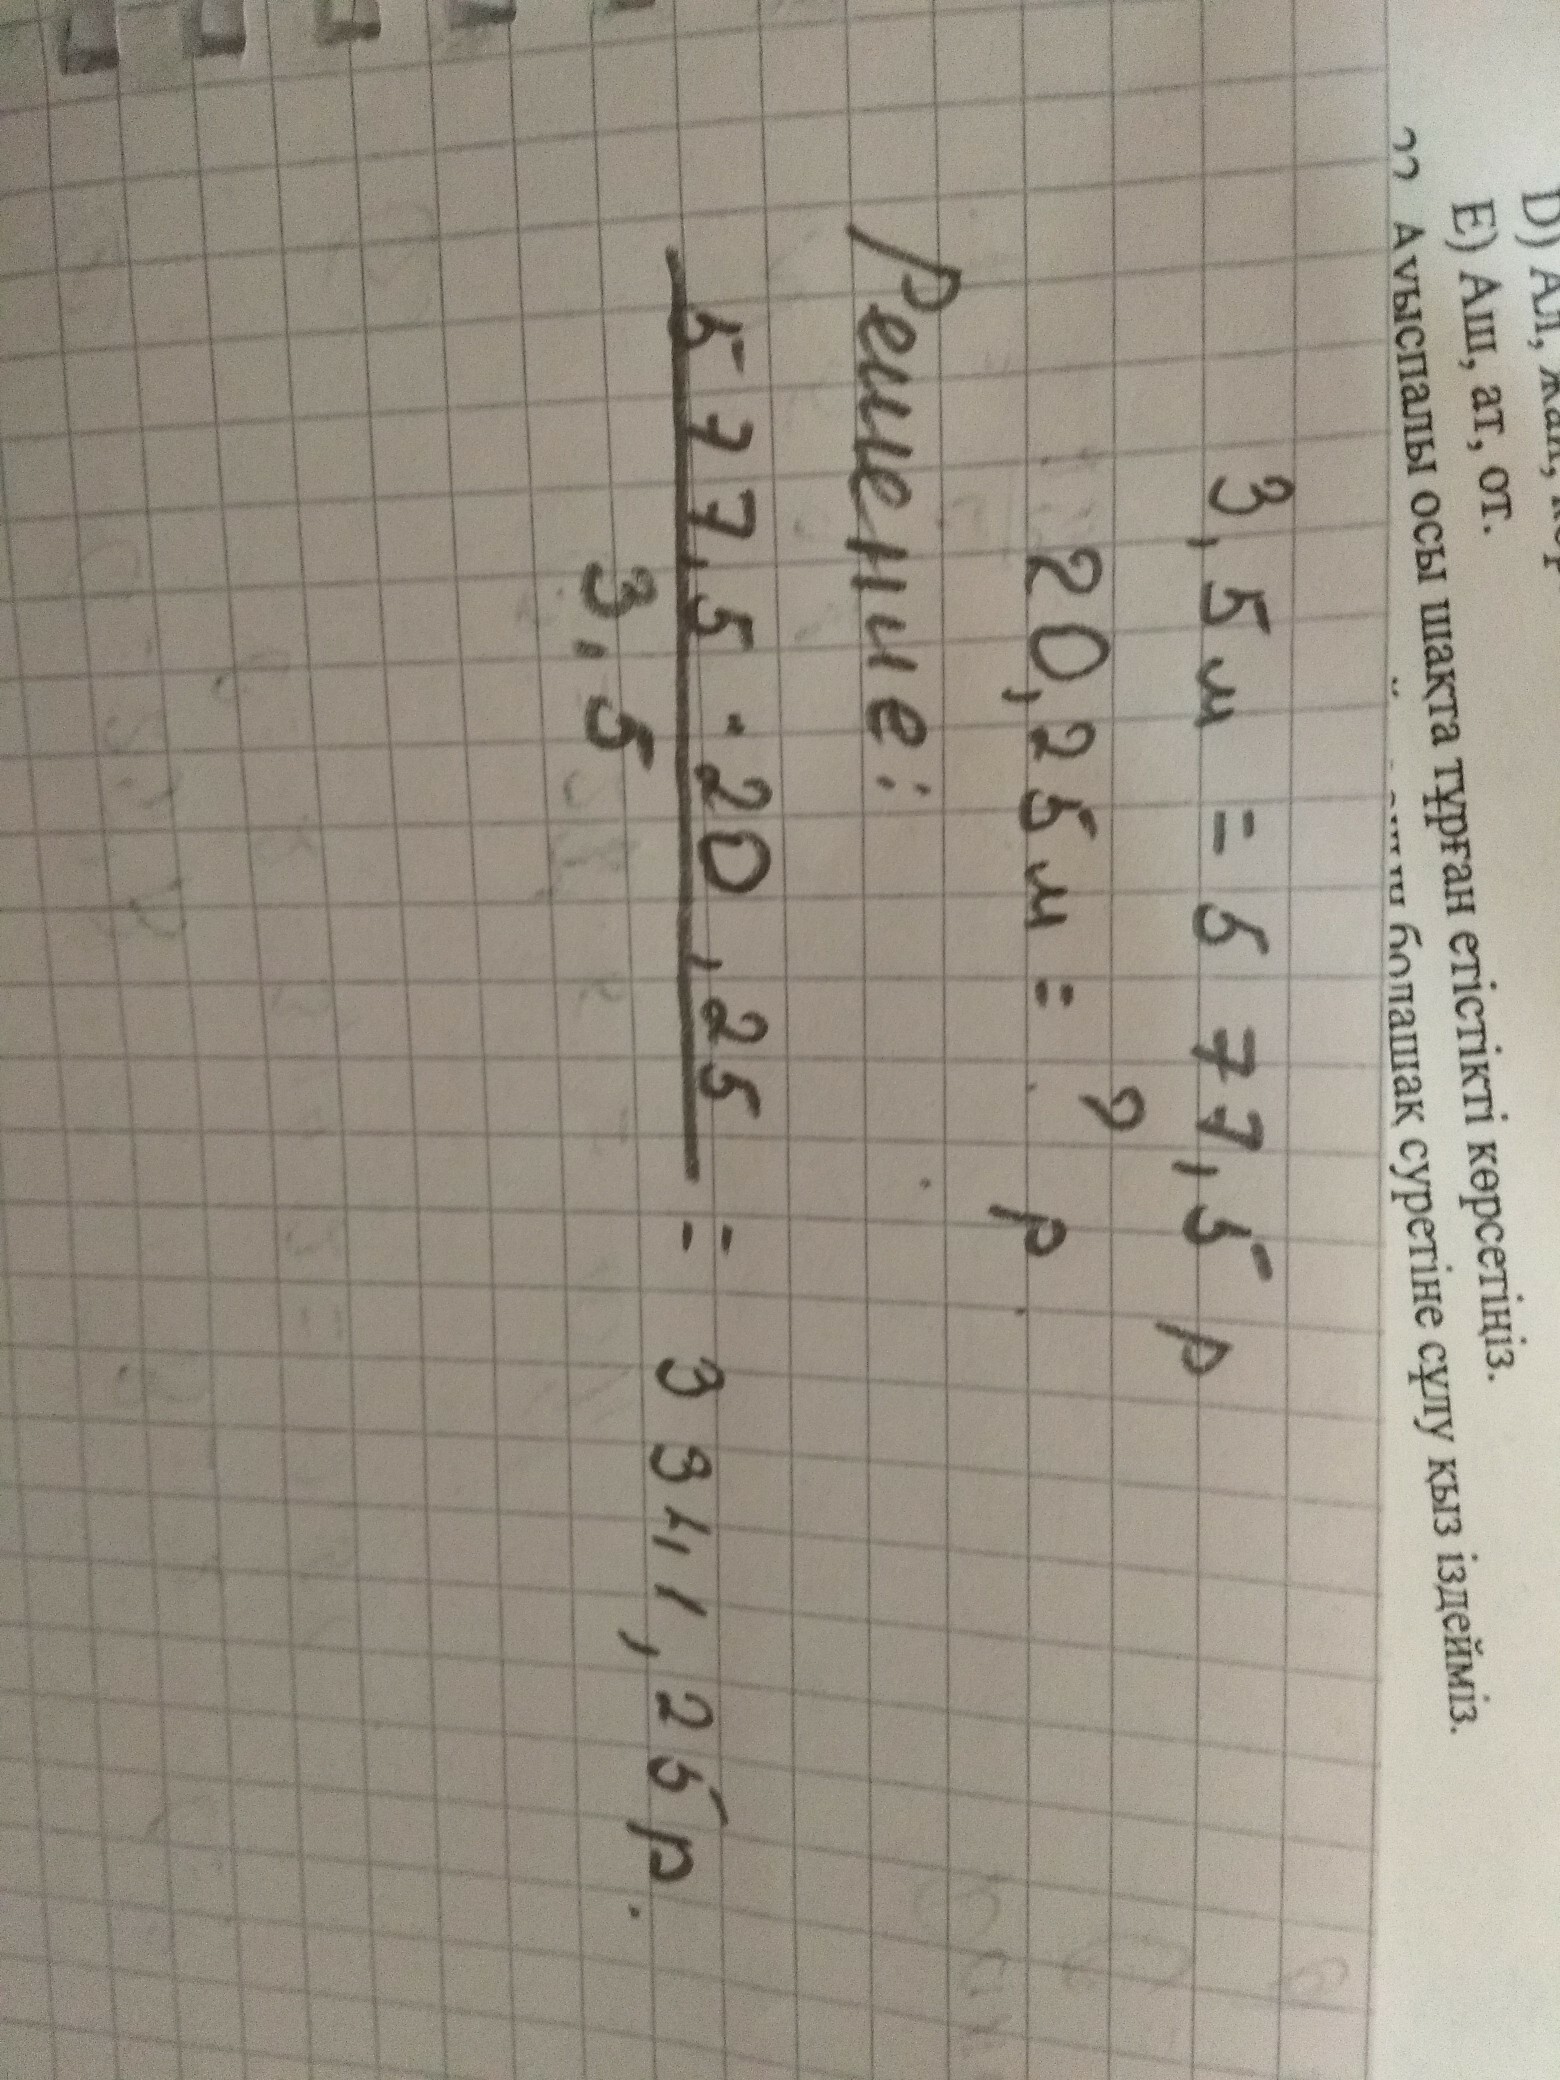 D) Ал, жап, көр
E) Аш, ат, от.
22 Ауыспалы осы шақта тұрған етістікті көрсетіңіз.
болашақ суретіне сұлу қыз іздейміз.
3,5 м = 577,5 р
20,25 м = ? р.
Решение:
577,5 · 20,25 = 3341,25 р.
3,5